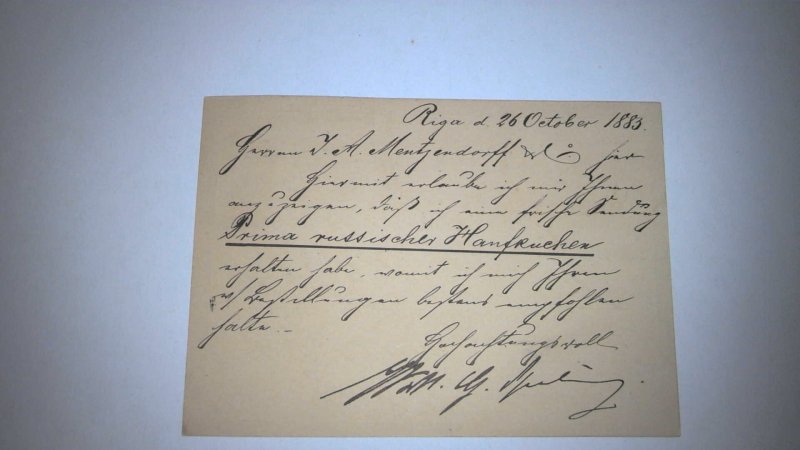 Riga d. 26 October 1883.
Herrn J. A. Mentzendorff & Co hier
Hiermit erlaube ich mir Ihnen
anzuzeigen, daß ich eine frische Sendung
Prima russischer Hanfkuchen
erhalten habe, womit ich mich Ihren
w/ Bestellungen bestens empfohlen
halte. –
Hochachtungsvoll